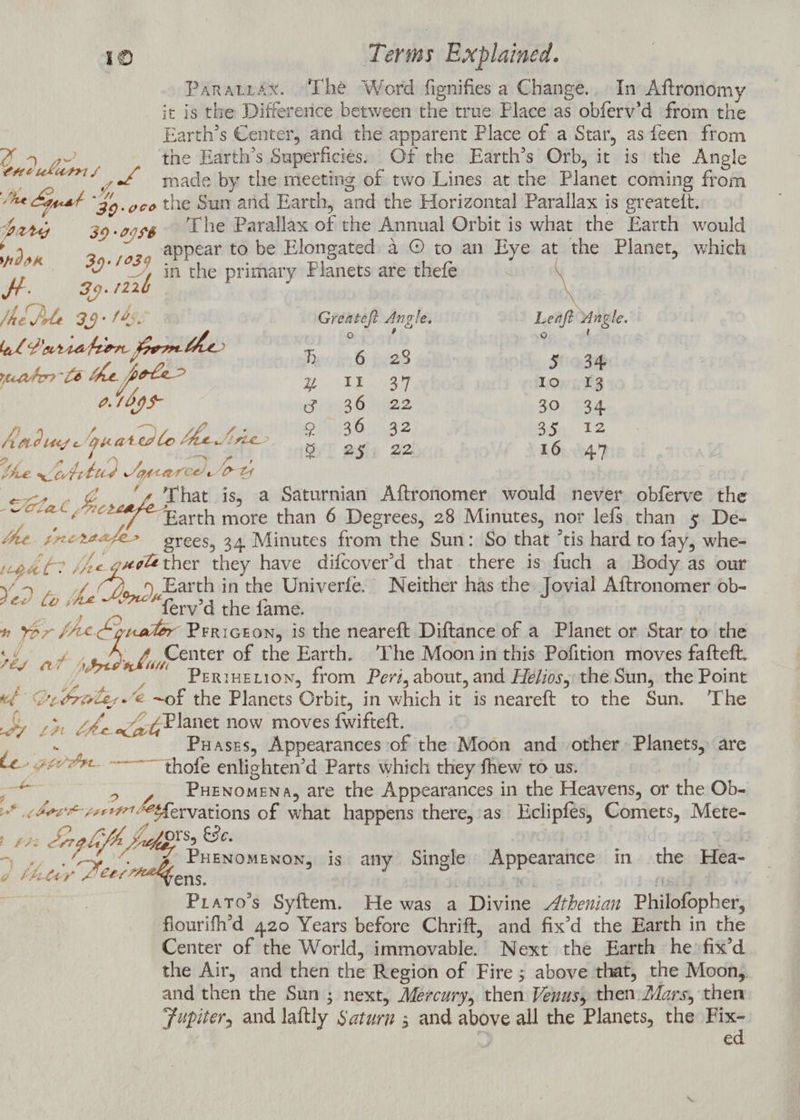 10 Terms Explained.
PARALLAX. The Word ſignifies a Change. In Aſtronomy
it is the Difference between the true Place as obſerv'd from the
Earth's Center, and the apparent Place of a Star, as ſeen from
the Earth's Superficies. Of the Earth's Orb, it is the Angle
made by the meeting of two Lines at the Planet coming from
the Sun and Earth, and the Horizontal Parallax is greateſt.
The Parallax of the Annual Orbit is what the Earth would
appear to be Elongated à ☉ to an Eye at the Planet, which
in the primary Planets are theſe
Greateſt Angle. Leaſt Angle.
° ′ ° ′
♄ 6 28 5 34
♃ 11 37 10 13
♂ 36 22 30 34
♀ 36 32 35 12
☿ 25 22 16 47
That is, a Saturnian Aſtronomer would never obſerve the
Earth more than 6 Degrees, 28 Minutes, nor leſs than 5 De-
grees, 34 Minutes from the Sun: So that 'tis hard to ſay, whe-
ther they have diſcover'd that there is ſuch a Body as our
Earth in the Univerſe. Neither has the Jovial Aſtronomer ob-
ſerv'd the ſame.
PERIGEON, is the neareſt Diſtance of a Planet or Star to the
Center of the Earth. The Moon in this Poſition moves faſteſt.
PERIHELION, from Peri, about, and Helios, the Sun, the Point
of the Planets Orbit, in which it is neareſt to the Sun. The
Planet now moves ſwifteſt.
PHASES, Appearances of the Moon and other Planets, are
thoſe enlighten'd Parts which they ſhew to us.
PHENOMENA, are the Appearances in the Heavens, or the Ob-
ſervations of what happens there, as Eclipſes, Comets, Mete-
ors, &c.
PHENOMENON, is any Single Appearance in the Hea-
vens.
PLATO's Syſtem. He was a Divine Athenian Philoſopher,
flouriſh'd 420 Years before Chriſt, and fix'd the Earth in the
Center of the World, immovable. Next the Earth he fix'd
the Air, and then the Region of Fire; above that, the Moon,
and then the Sun; next, Mercury, then Venus, then Mars, then
Jupiter, and laſtly Saturn; and above all the Planets, the Fix-
ed
39.000
39.0956
39.1039
39.1226
the Pole
from the
the pole
0.1695
the Sine
the increase
the Equator
in the
in English